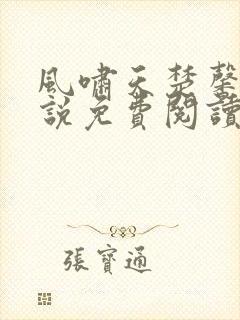 風嘯天楚馨
說免費閱讀
張寶通